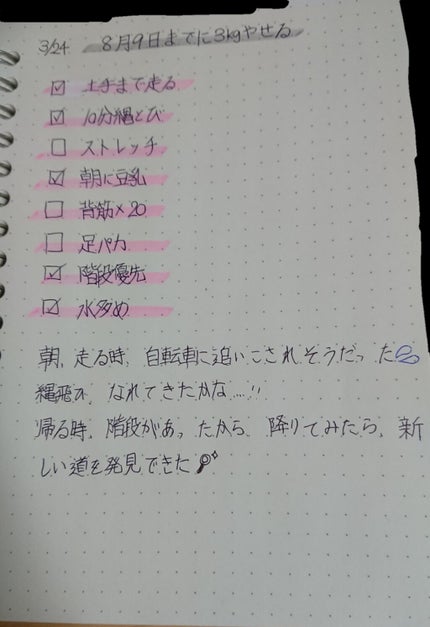 3/24 8月9日までに3kgやせる
☑ 土手まで走る
☑ 10分縄とび
☐ ストレッチ
☑ 朝に豆乳
☐ 背筋×20
☐ 足パカ
☑ 階段優先
☑ 水多め
朝、走る時、自転車に追いこされそうだった
縄飛び、なれてきたかな…!!
帰る時、階段があったから、降りてみたら、新
しい道を発見できた